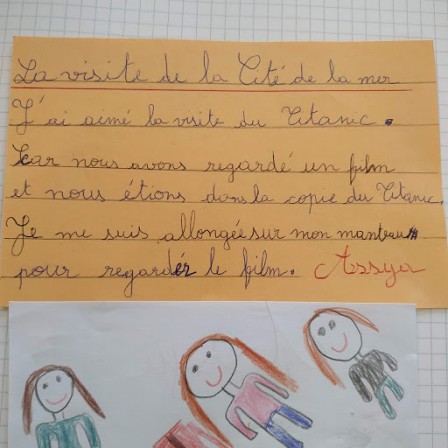 La visite de la Cité de la mer
J'ai aimé la visite du Titanic.
Car nous avons regardé un film
et nous étions dans la copie du Titanic.
Je me suis allongée sur mon manteau
pour regardér le film. Assya